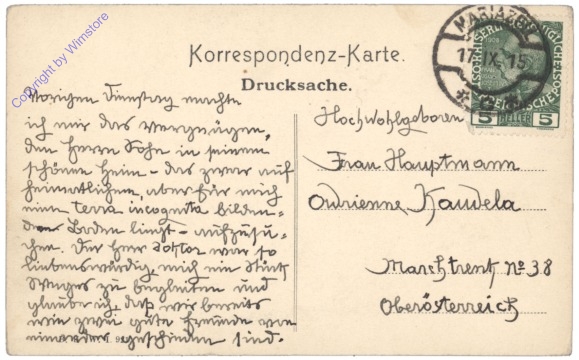 Copyright by Wimstore
Korrespondenz-Karte.
Drucksache.
MARIAZELL
17. IX. 15
5 HELLER 5
Vorigen Dienstag machte
ich mir das Vergnügen,
den Herrn Sohn in seinem
schönen Heim - das zwar auf
heimatlichem, aber für mich
eine terra incognita bilden-
den Boden liegt - aufzusu-
chen. Der Herr Doktor war so
liebenswürdig, mich ein Stück
Weges zu begleiten und
glaube ich, daß wir bereits
wie zwei gute Freunde von
einander geschieden sind.
Hochwohlgeboren
Frau Hauptmann
Adrienne Kaudela
Marchtrenk No 38
Oberösterreich